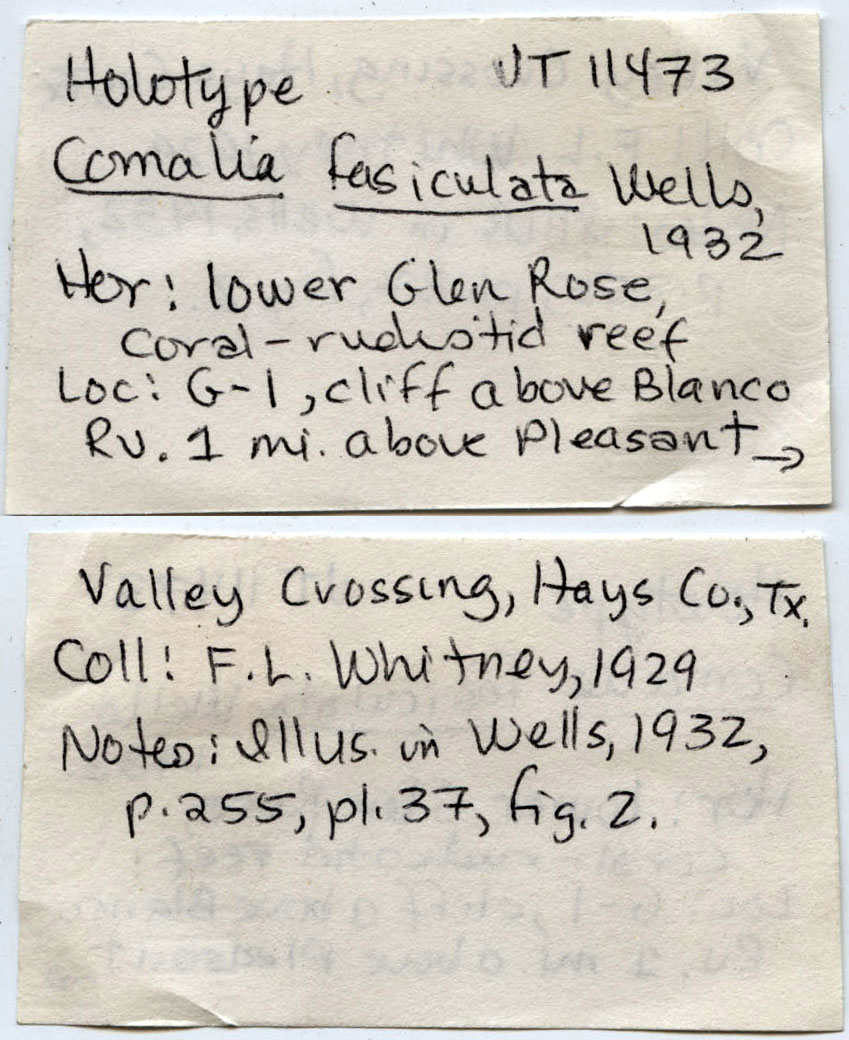 Holotype UT 11473
Comalia fasiculata Wells,
1932
Hor: lower Glen Rose,
coral-rudistid reef
Loc: G-1, cliff above Blanco
Rv. 1 mi. above Pleasant →
Valley Crossing, Hays Co., Tx.
Coll: F.L. Whitney, 1929
Notes: Illus. in Wells, 1932,
p. 255, pl. 37, fig. 2.